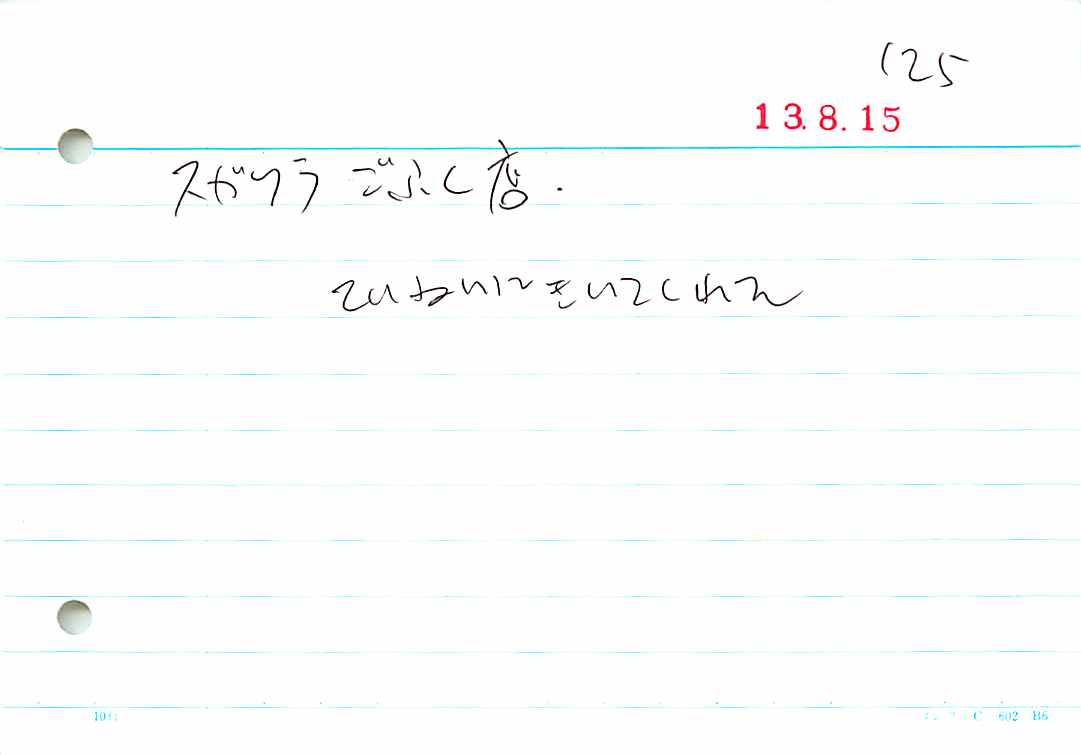 125
13.8.15
スガハラ ごふく店.
ていねいにきいてくれた
C 602 B6